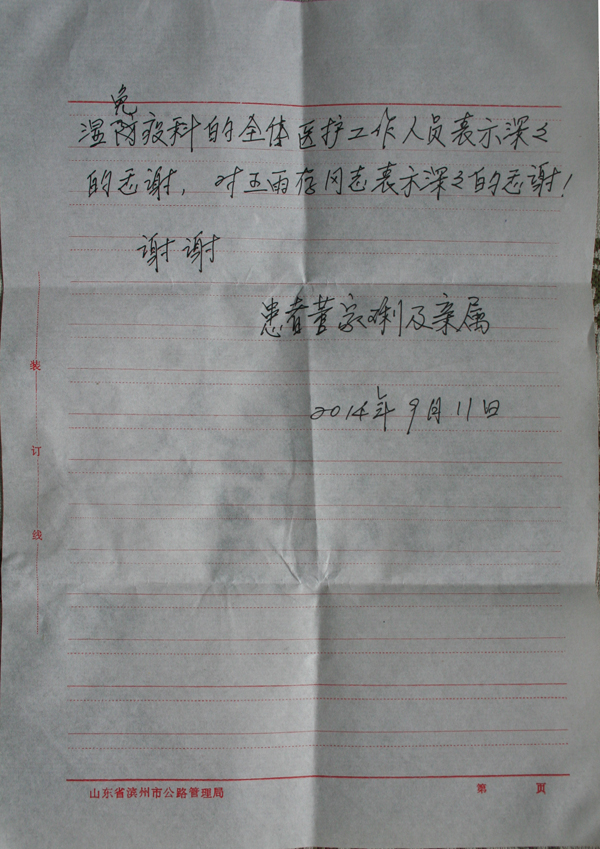 免
湿防疫科的全体医护工作人员表示深々
的感谢，对王雨存同志表示深々的感谢！
谢谢
患者董家利及亲属
2014年9月11日
装
订
线
山东省滨州市公路管理局
第 页